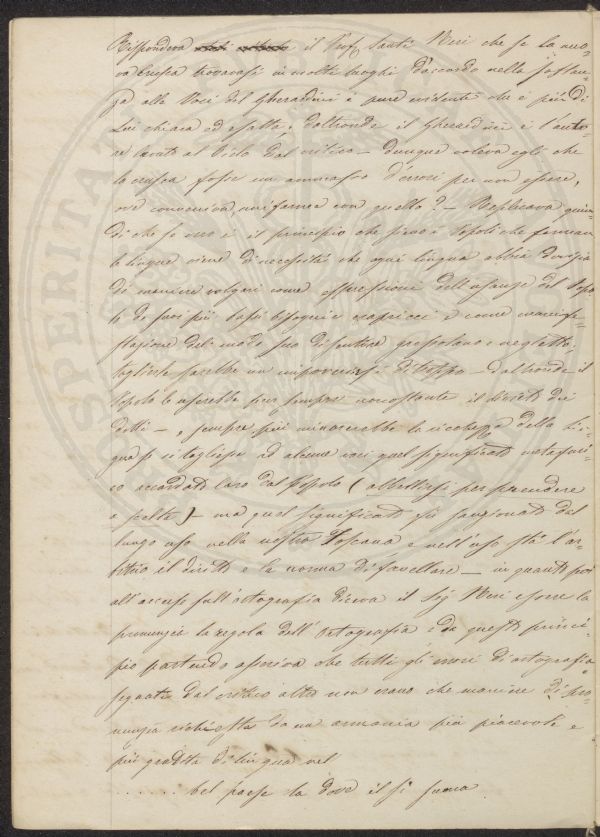 Rispondeva il Prof. Santi Neri che se la nuo-
va Crusca trovavasi in molti luoghi d'accordo nella sostan-
za alle Voci del Gherardini è pure evidente che è più di
Lui chiara ed esatta. D'altronde il Gherardini è l'auto-
re levato al Cielo dal critico – dunque voleva egli che
la crusca fosse un ammasso d'errori per non essere,
ove conveniva, uniforme con quello? – Replicava quin-
di che se vero è il principio che sieno i Popoli che formano
le lingue viene di necessità che ogni lingua abbia dovizia
di maniere volgari come espressioni dell'usanze del Popo-
lo de suoi più bassi bisogni e capricci e come manife-
stazione del modo suo di sentire grossolano e negletto.
toglierle sarebbe un impoverirsi di troppo – dalbonde il
Popolo le userebbe per sempre nonostante il divieto dei
dotti – e sempre più minorerebbe la ricchezza della Lin-
gua se si togliesse ad alcune voci quel significato metafori-
co accordato loro dal Popolo ( allettarsi per prendere
a scelta ) – ma quel significato fu sanzionato dal
lungo uso nella nostra Toscana e nell'uso sta l'ar-
bitrio il diritto e la norma di favellare – in quanto poi
all'accuse sull'ortografia diceva il Sig Neri essere la
pronunzia la regola dell'Ortografia e da questo princi-
pio partendo asseriva che tutti gli errori di ortografia
segnati dal critico altro non erano che maniere di pro-
nunzia richieste da un armonia più piacevole e
più gradita di lingua nel
. . . . . . bel paese la dove il si suona